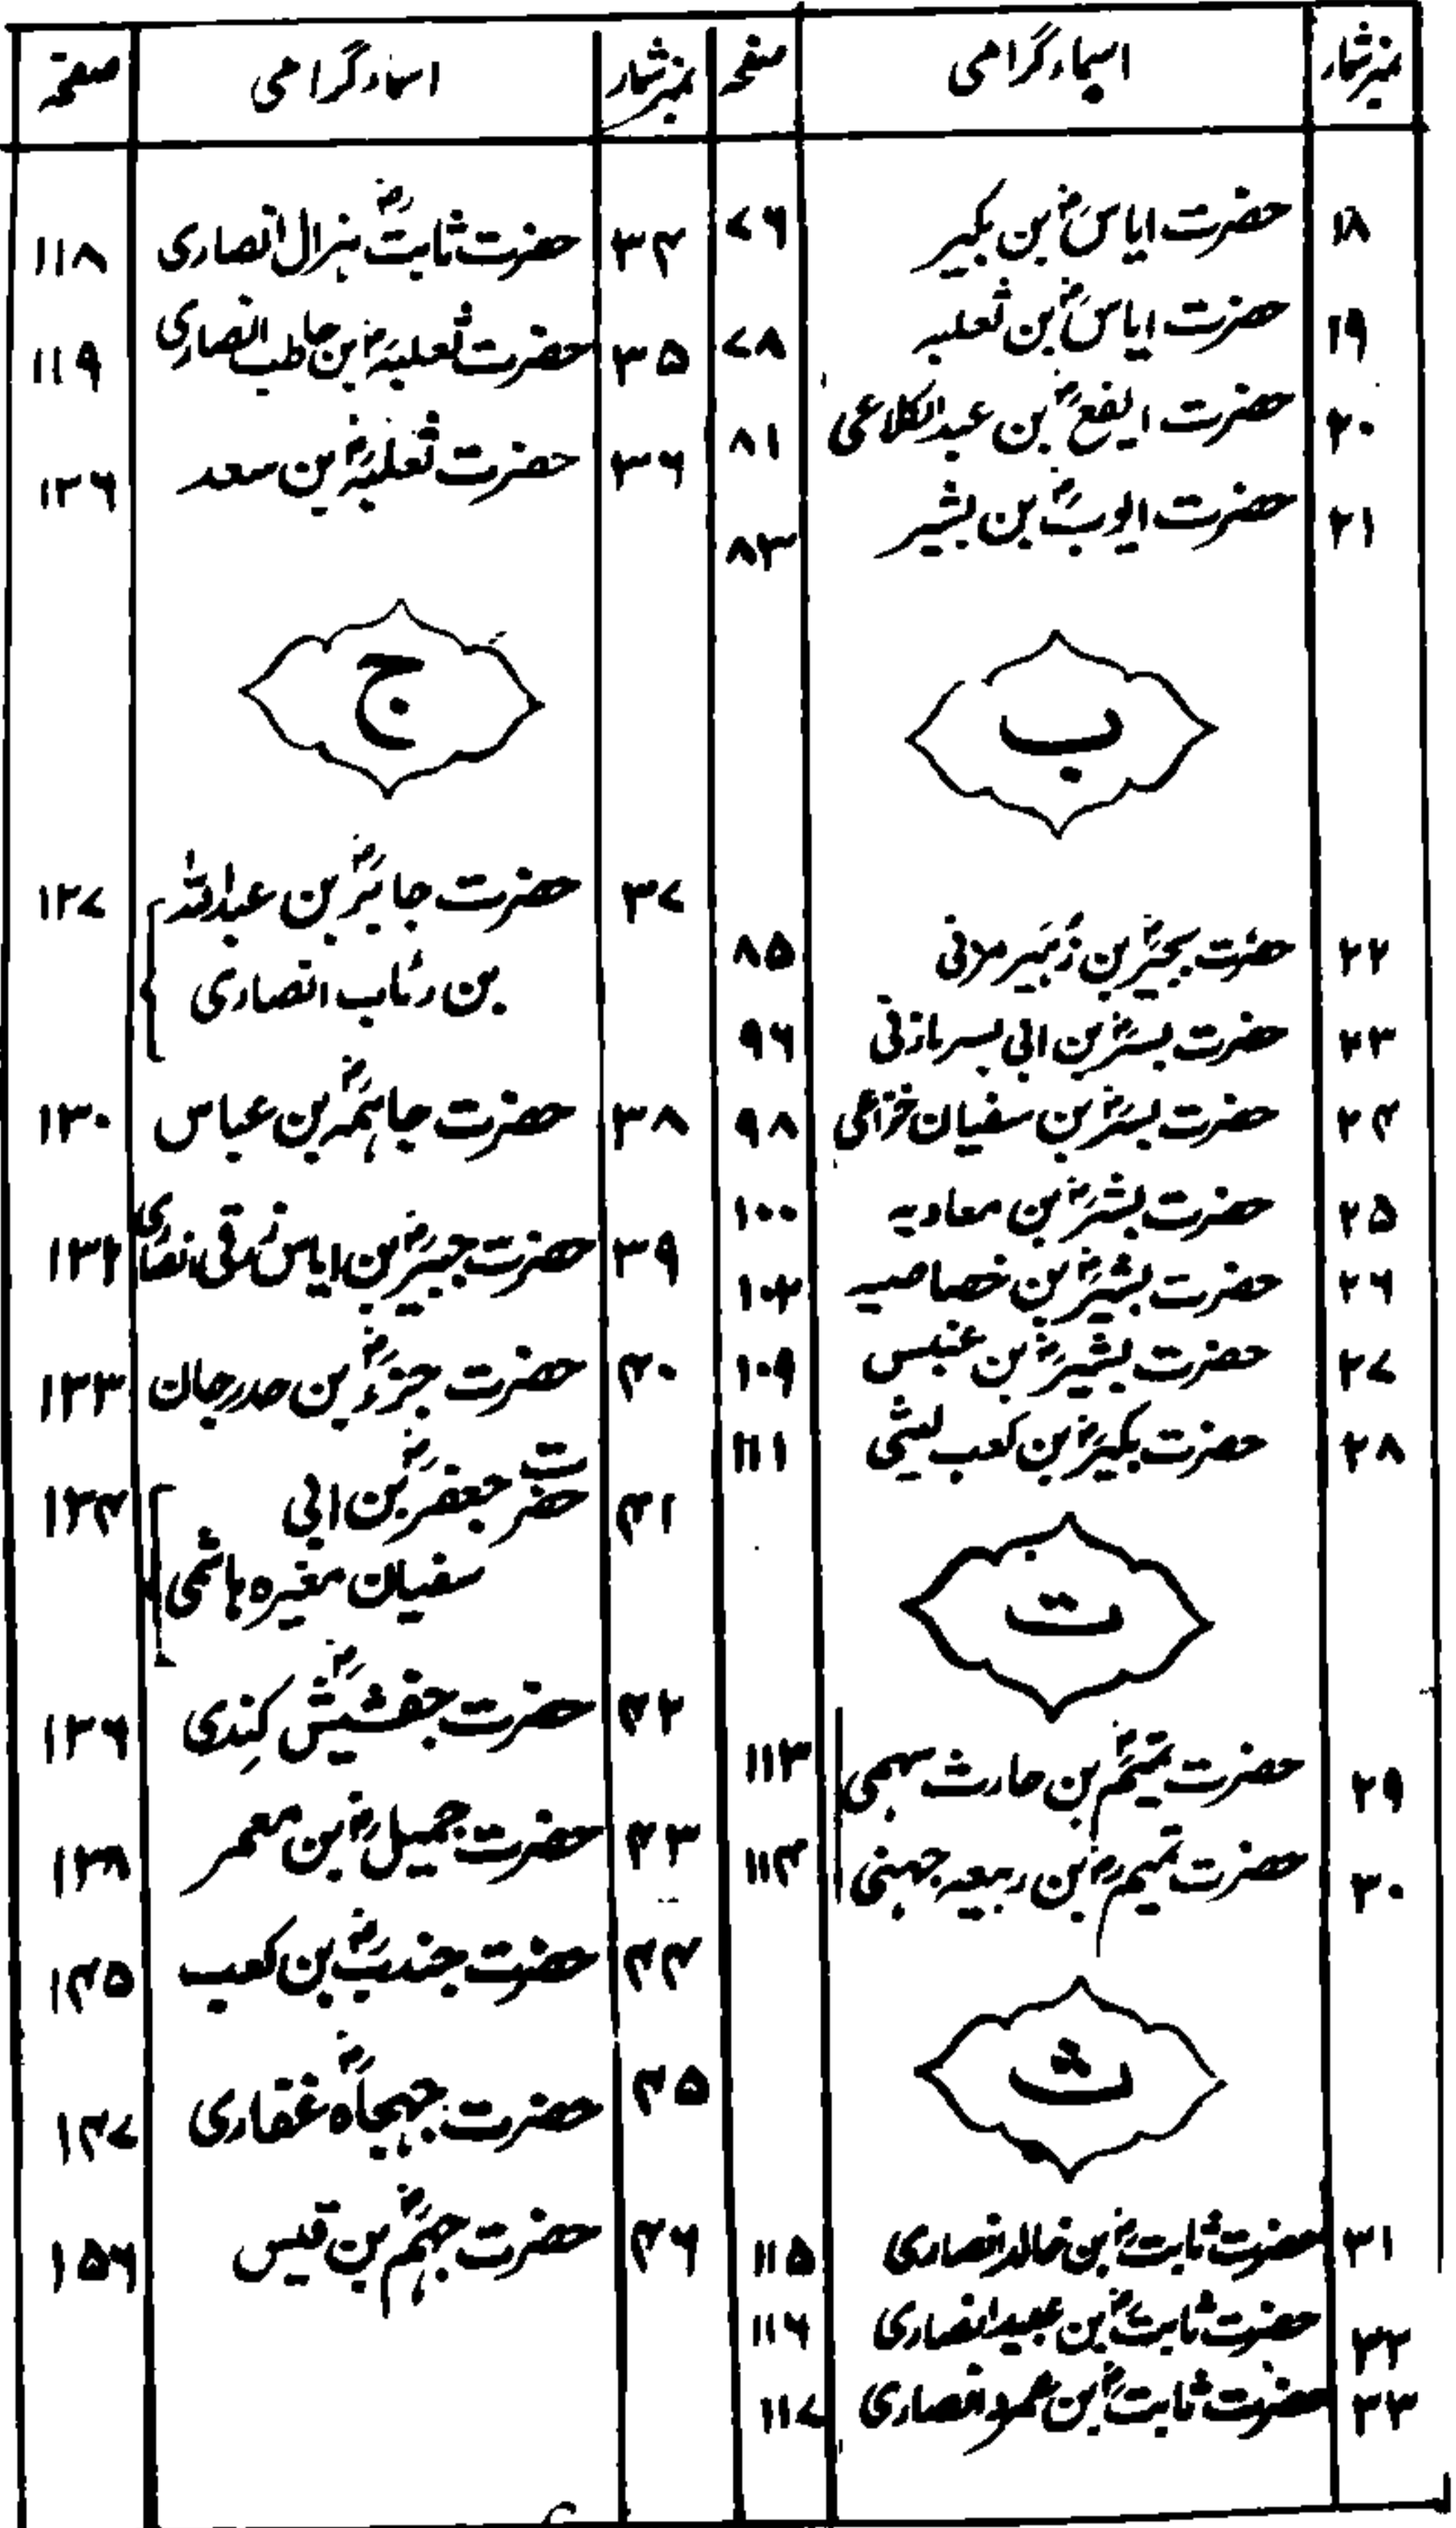 نمبر شمار اسماء گرامی صفحہ
۱۸ حضرت ایاسؓ بن بکیر ۷۶
۱۹ حضرت ایاسؓ بن ثعلبہ ۷۸
۲۰ حضرت ایفعؓ بن عبدالکلاعی ۸۱
۲۱ حضرت ایوبؓ بن بشیر ۸۳
ب
۲۲ حضرت بجیرؓ بن زُہَیر مزنی ۸۵
۲۳ حضرت بسرؓ بن ابی بسر مازنی ۹۶
۲۴ حضرت بسرؓ بن سفیان خزاعی ۹۸
۲۵ حضرت بشرؓ بن معاویہ ۱۰۰
۲۶ حضرت بشیرؓ بن خصاصیہ ۱۰۳
۲۷ حضرت بشیرؓ بن عنبس ۱۰۹
۲۸ حضرت بکیرؓ بن کعب لیثی ۱۱۱
ت
۲۹ حضرت تمیمؓ بن حارث سہمی ۱۱۳
۳۰ حضرت تمیمؓ بن ربیعہ جہنی ۱۱۴
ث
۳۱ حضرت ثابتؓ بن خالد انصاری ۱۱۵
۳۲ حضرت ثابتؓ بن عبید انصاری ۱۱۶
۳۳ حضرت ثابتؓ بن عمرو انصاری ۱۱۷
نمبر شمار اسماء گرامی صفحہ
۳۴ حضرت ثابتؓ ہزال انصاری ۱۱۸
۳۵ حضرت ثعلبہؓ بن حاطب انصاری ۱۱۹
۳۶ حضرت ثعلبہؓ بن سعد ۱۲۶
ج
۳۷ حضرت جابرؓ بن عبداللہ ۱۲۷
بن رئاب انصاری
۳۸ حضرت جاہمہؓ بن عباس ۱۳۰
۳۹ حضرت جبیرؓ بن ایاس زرقی انصاری ۱۳۲
۴۰ حضرت جزءؓ بن حدرجان ۱۳۳
۴۱ حضرت جعفرؓ بن ابی ۱۳۴
سفیان مغیرہ ہاشمی
۴۲ حضرت جفشیشؓ کِندی ۱۳۶
۴۳ حضرت جمیلؓ بن معمر ۱۳۸
۴۴ حضرت جندبؓ بن کعب ۱۴۵
۴۵ حضرت جہجاہؓ غفاری ۱۴۷
۴۶ حضرت جہمؓ بن قیس ۱۵۶